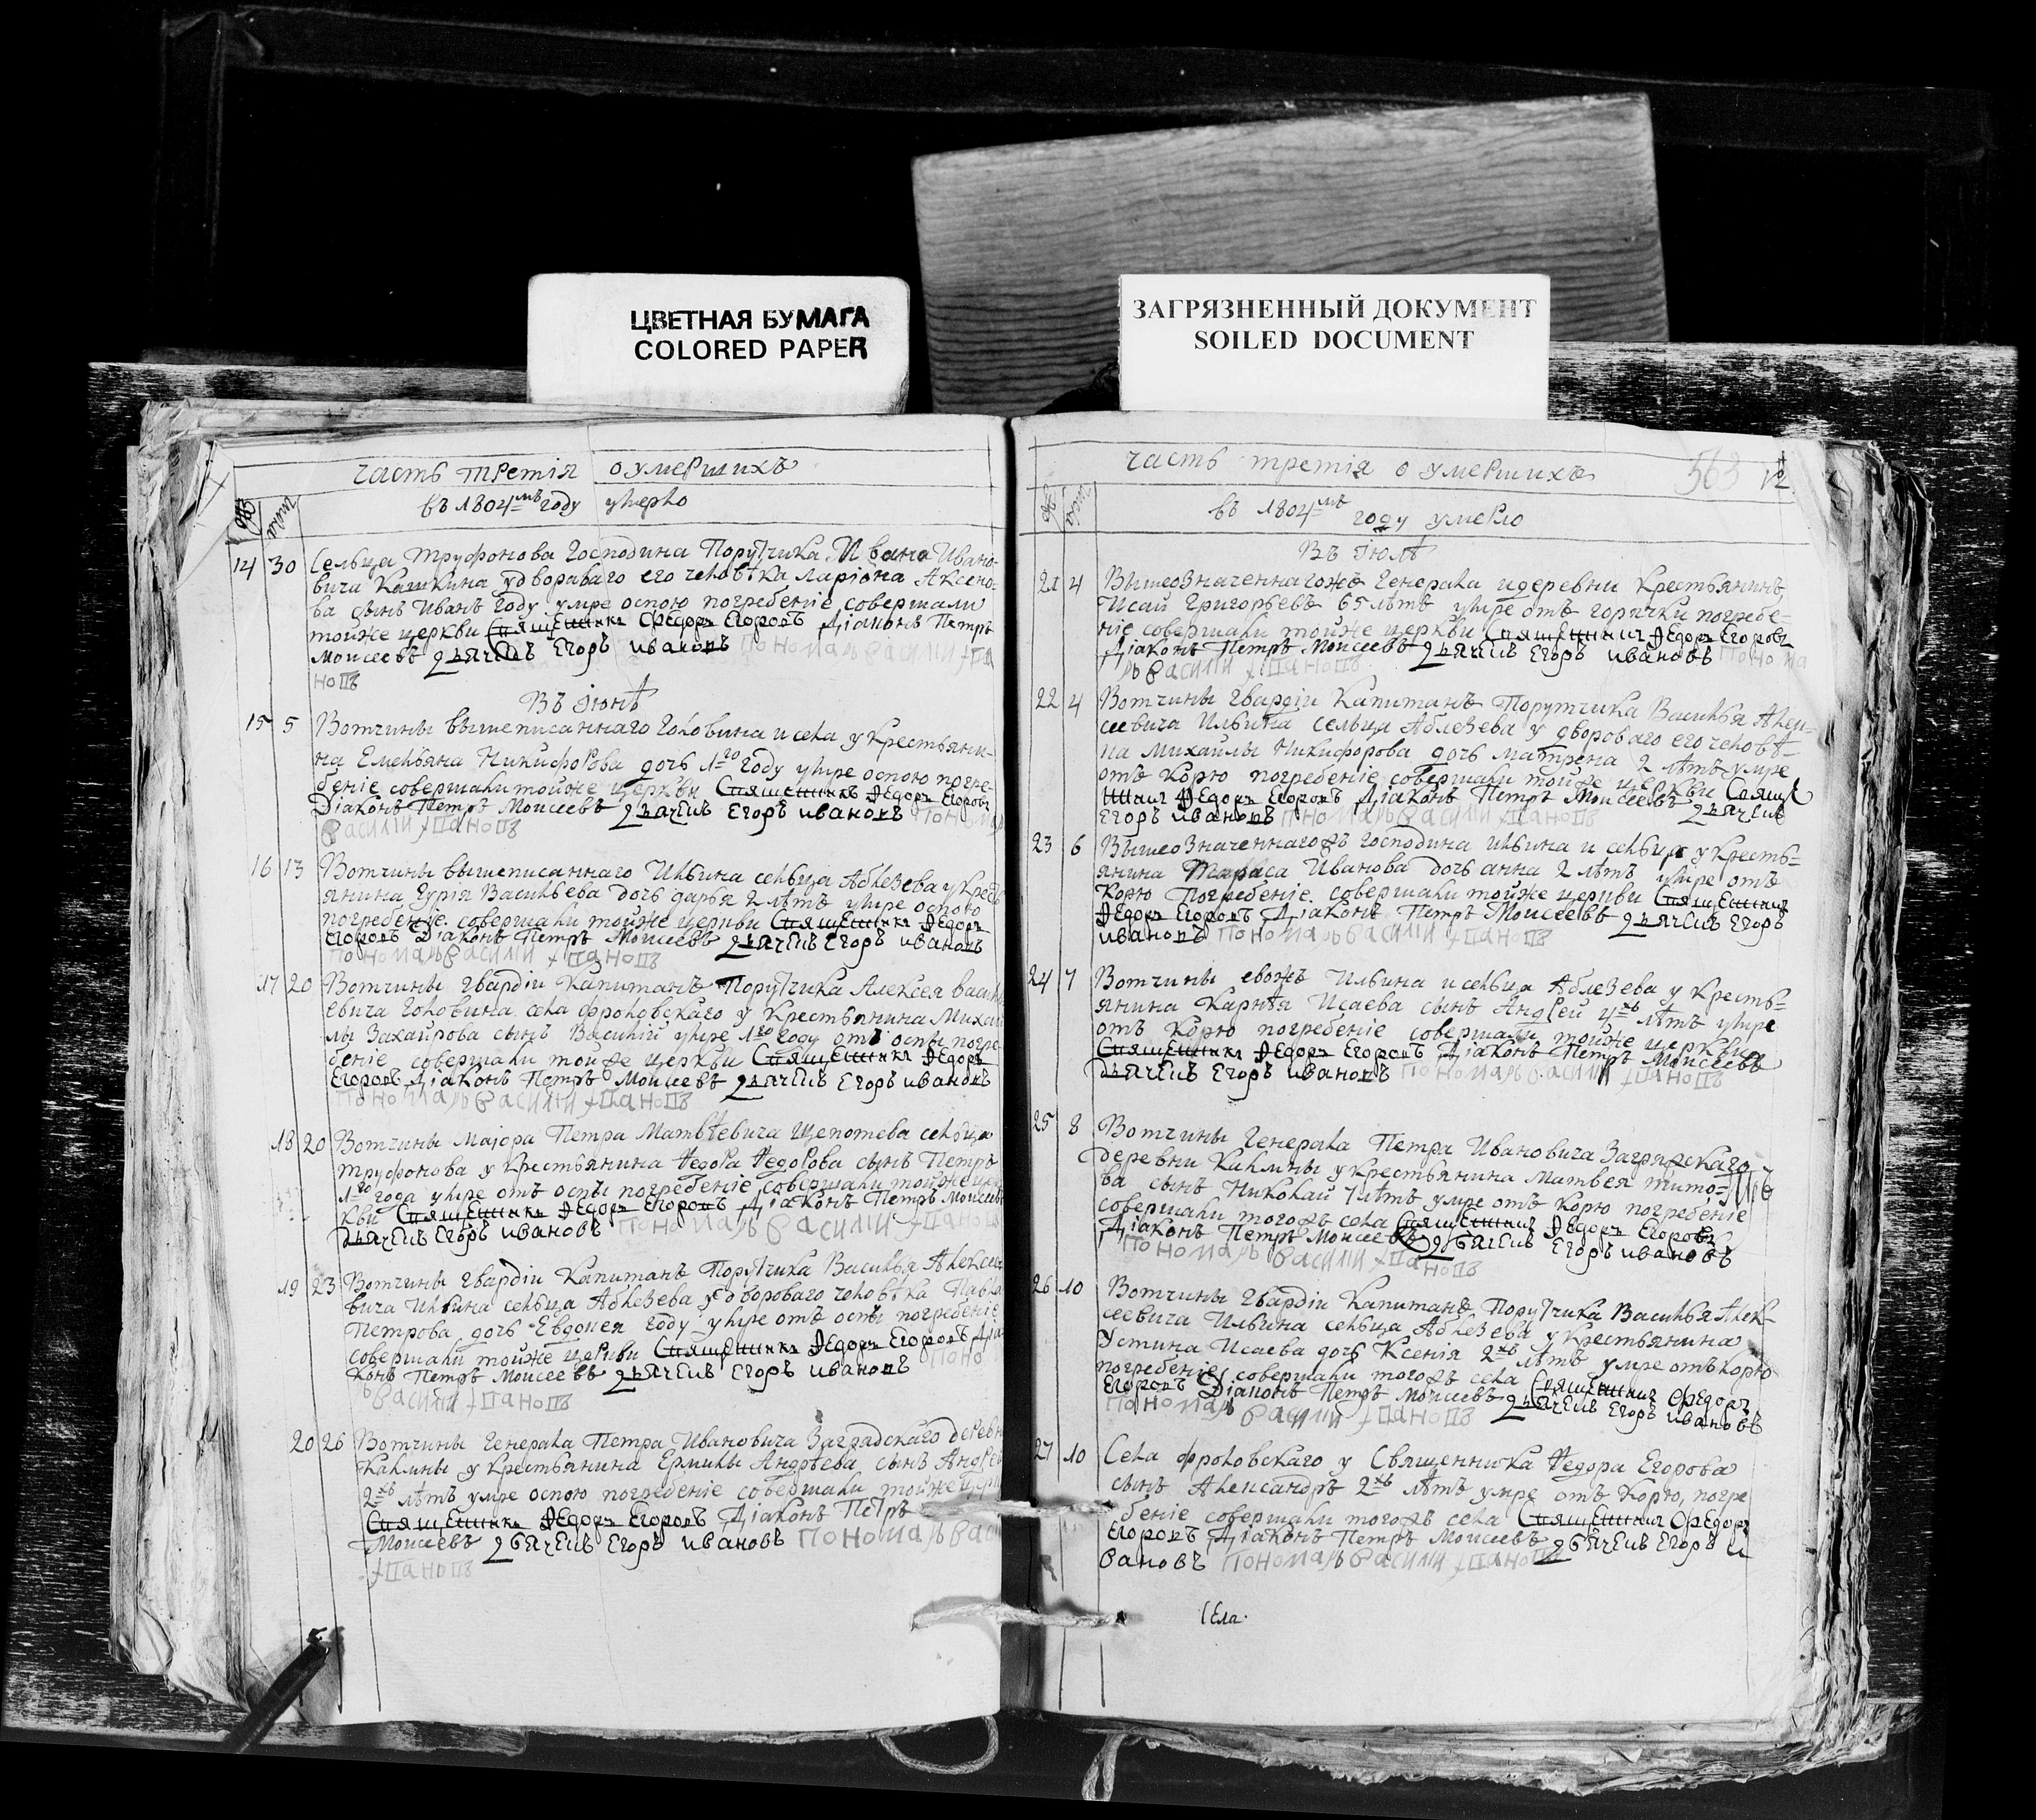 ЦВЕТНАЯ БУМАГА
COLORED PAPER
ЗАГРЯЗНЕННЫЙ ДОКУМЕНТ
SOILED DOCUMENT
часть третія о умершихъ
въ 1804мъ году умерло
14 30 Сельца Труфонова Господина Порутчика Ивана Ивано-
вича Кашкина у дворават его человѣка Ларіона Аксено-
ва сынъ Иванъ году умре оспою погребеніе совершали
тойже церкви Священникъ Ѳедоръ Егоровъ Діаконъ Петръ
Моисеевъ Дьячекъ Егоръ Ивановъ Пономарь Василий Па
новъ
Въ іюнѣ
15 5 Вотчины вышеписаннаго Головина и села у крестьяни-
на Емельяна Никифорова дочь 1го году умре оспою погре-
беніе совершали тойже церкви Священникъ Ѳедоръ Егоровъ
Діаконъ Петръ Моисеевъ Дьячекъ Егоръ Ивановъ Понома
Василий Пановъ
16 13 Вотчины вышеписаннаго Ильина сельца Аблезева у кресть
янина Гурія Васильева дочь дарья 2 лѣтъ умре оспою
погребеніе совершали тойже церкви Священникъ Ѳедоръ
Егоровъ Діаконъ Петръ Моисеевъ Дьячекъ Егоръ Ивановъ
Пономарь Василий Пановъ
17 20 Вотчины Гвардіи Капитанъ Порутчика Алексея Василь
евича Головина села Фроловскаго у крестьянина Михаи
лы Захаирова сынъ Василій умре 1го году отъ оспы погре
беніе совершали тойже церкви Священникъ Ѳедоръ
Егоровъ Діаконъ Петръ Моисеевъ Дьячекъ Егоръ Ивановъ
Пономарь Василий Пановъ
18 20 Вотчины Маіора Петра Матвѣевича Щепотева сельца
Труфонова у крестьянина Ѳедора Ѳедорова сынъ Петръ
1го года умре отъ оспы погребеніе совершали тойже цер
кви Священникъ Ѳедоръ Егоровъ Діаконъ Петръ Моисеевъ
Дьячекъ Егоръ Ивановъ Пономарь Василий Пановъ
19 23 Вотчины Гвардіи Капитанъ Порутчика Василья Алексее
вича Ильина сельца Аблезева у двороваго человѣка Павла
Петрова дочь Евдокея году умре отъ оспы погребеніе
совершали тойже церкви Священникъ Ѳедоръ Егоровъ Діа
конъ Петръ Моисеевъ Дьячекъ Егоръ Ивановъ Поно
Василий Пановъ
20 26 Вотчины Генерала Петра Ивановича Загрядскаго деревн
Калмны у крестьянина Ермилы Андрѣева сынъ Андрей
2хъ лѣтъ умре оспою погребеніе совершали тойже церк
Священникъ Ѳедоръ Егоровъ Діаконъ Петръ
Моисеевъ Дьячекъ Егоръ Ивановъ Пономарь Васи
Пановъ
часть третія о умершихъ 563 12
въ 1804мъ году умерло
Въ іюлѣ
21 4 Вышеозначеннагожъ Генерала и деревни крестьянинъ
Исай Григорьевъ 65 лѣтъ умре отъ горячки погребе-
ніе совершали тойже церкви Священникъ Ѳедоръ Егоровъ
Діаконъ Петръ Моисеевъ Дьячекъ Егоръ Ивановъ Понома
рь Василий Пановъ
22 4 Вотчины Гвардіи Капитанъ Порутчика Василья Алек-
сеевича Ильина сельца Аблезева у двороваго его человѣ-
ка Михайлы Никифорова дочь Матрена 2 лѣтъ умре
отъ корю погребеніе совершали тойже церкви Свяще
нникъ Ѳедоръ Егоровъ Діаконъ Петръ Моисеевъ Дьячекъ
Егоръ Ивановъ Пономарь Василий Пановъ
23 6 Вышеозначеннагожъ господина Ильина и сельца у кресть-
янина Тараса Иванова дочь Анна 2 лѣтъ умре отъ
корю Погребеніе совершали тойже церкви Священникъ
Ѳедоръ Егоровъ Діаконъ Петръ Моисеевъ Дьячекъ Егоръ
Ивановъ Пономарь Василий Пановъ
24 7 Вотчины евожъ Ильина и сельца Аблезева у кресть-
янина Карнѣя Исаева сынъ Андрей 4хъ лѣтъ умре
отъ корю погребеніе совершали тойже церкви
Священникъ Ѳедоръ Егоровъ Діаконъ Петръ Моисеевъ
Дьячекъ Егоръ Ивановъ Пономарь Василий Пановъ
25 8 Вотчины Генерала Петра Ивановича Загряжскаго
деревни Калмны у крестьянина Матвея Тимо-
ва сынъ Николай лѣтъ умре отъ корю погребеніе
совершали тогожъ села Священникъ Ѳедоръ Егоровъ
Діаконъ Петръ Моисеевъ Дьячекъ Егоръ Ивановъ
Пономарь Василий Пановъ
26 10 Вотчины Гвардіи Капитанъ Порутчика Василья Алек-
сеевича Ильина сельца Аблезева у крестьянина
Устина Исаева дочь Ксенія 2хъ лѣтъ умре отъ корю
погребеніе совершали тогожъ села Священникъ Ѳедоръ
Егоровъ Діаконъ Петръ Моисеевъ Дьячекъ Егоръ Ивановъ
Пономарь Василий Пановъ
27 10 Села Фроловскаго у Священника Ѳедора Егорова
сынъ Александръ 2хъ лѣтъ умре отъ корю, погре
беніе совершали тогожъ села Священникъ Ѳедоръ
Егоровъ Діаконъ Петръ Моисеевъ Дьячекъ Егоръ И
вановъ Пономарь Василий Пановъ
Села